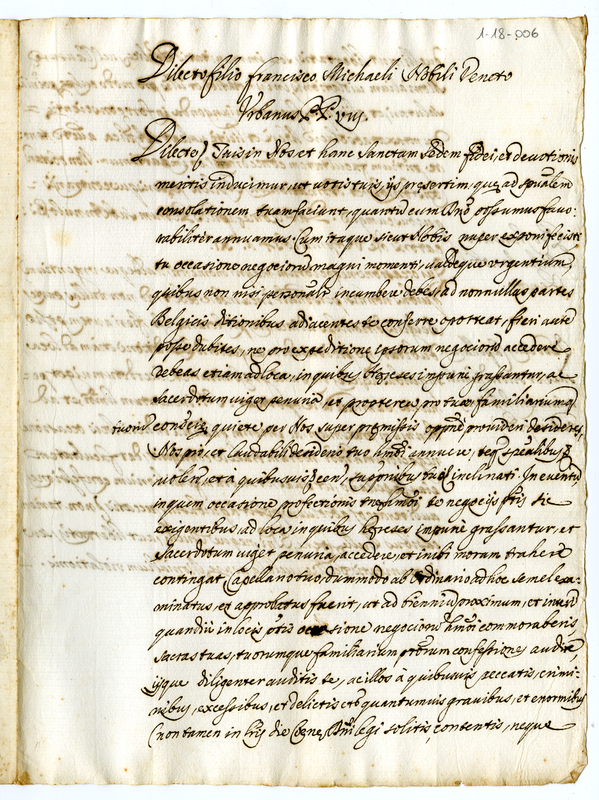 1-18-006
Dilecto filio Francisco Michaeli Nobili Veneto
Urbanus P.P. viij.
Dilecte f. Tuis in Nos et hanc sanctam sedem fidei, et devotionis
mentis inducimur, ut votis tuis, ijs presertim, que ad spualem
consolationem tuam faciant, quantũ cum Dno possumus favo-
rabiliter annuamus. Cum itaque sicut Nobis nuper exponi fecisti
tu occasione negociorũ magni momenti, valdeque urgentium,
quibus non nisi personalr incumbere debes, ad nonnullas partes
Belgicis ditionibus adiacentes te conferre oporteat, fieri autẽ
posse dubites, ne pro expeditione ipsorum negociorũ accedere
debeas etiam ad loca, in quibus hereses impune grassantur, ac
sacerdotum viget penuria, et propterea pro tua, familiariumq
tuorũ consciẽ quiete per Nos super premissis opporne provideri desideres,
Nos pio, et laudabili desiderio tuo hmoi annuere, teq spealibus
volen, et à quibusvis censen, supplibus inclinati. In eventu
inquem occasione profectionis tue hmoi te negocijs ptis sic
exigentibus, ad loca in quibus hereses impune grassantur, et
sacerdotum viget penuria, accedere, et inibi moram trahere
contingat Capellano tuo, dummodo ab Ordinario ad hoc semel exa-
minatus, et approbatus fuerit, ut ad biennium proximum, et interim
quandiu in locis ptis occasione negociorũ hmoi commoraberis
sacras tuas, tuorumque familiarium ptorum confessiones audire,
ijsque diligenter auditis te, ac illos à quibusvis peccatis, crimi-
nibus, excessibus, et delictis quantumvis gravibus, et enormibus
(non tamen in lris die Cene Dni legi solitis contentis, neque